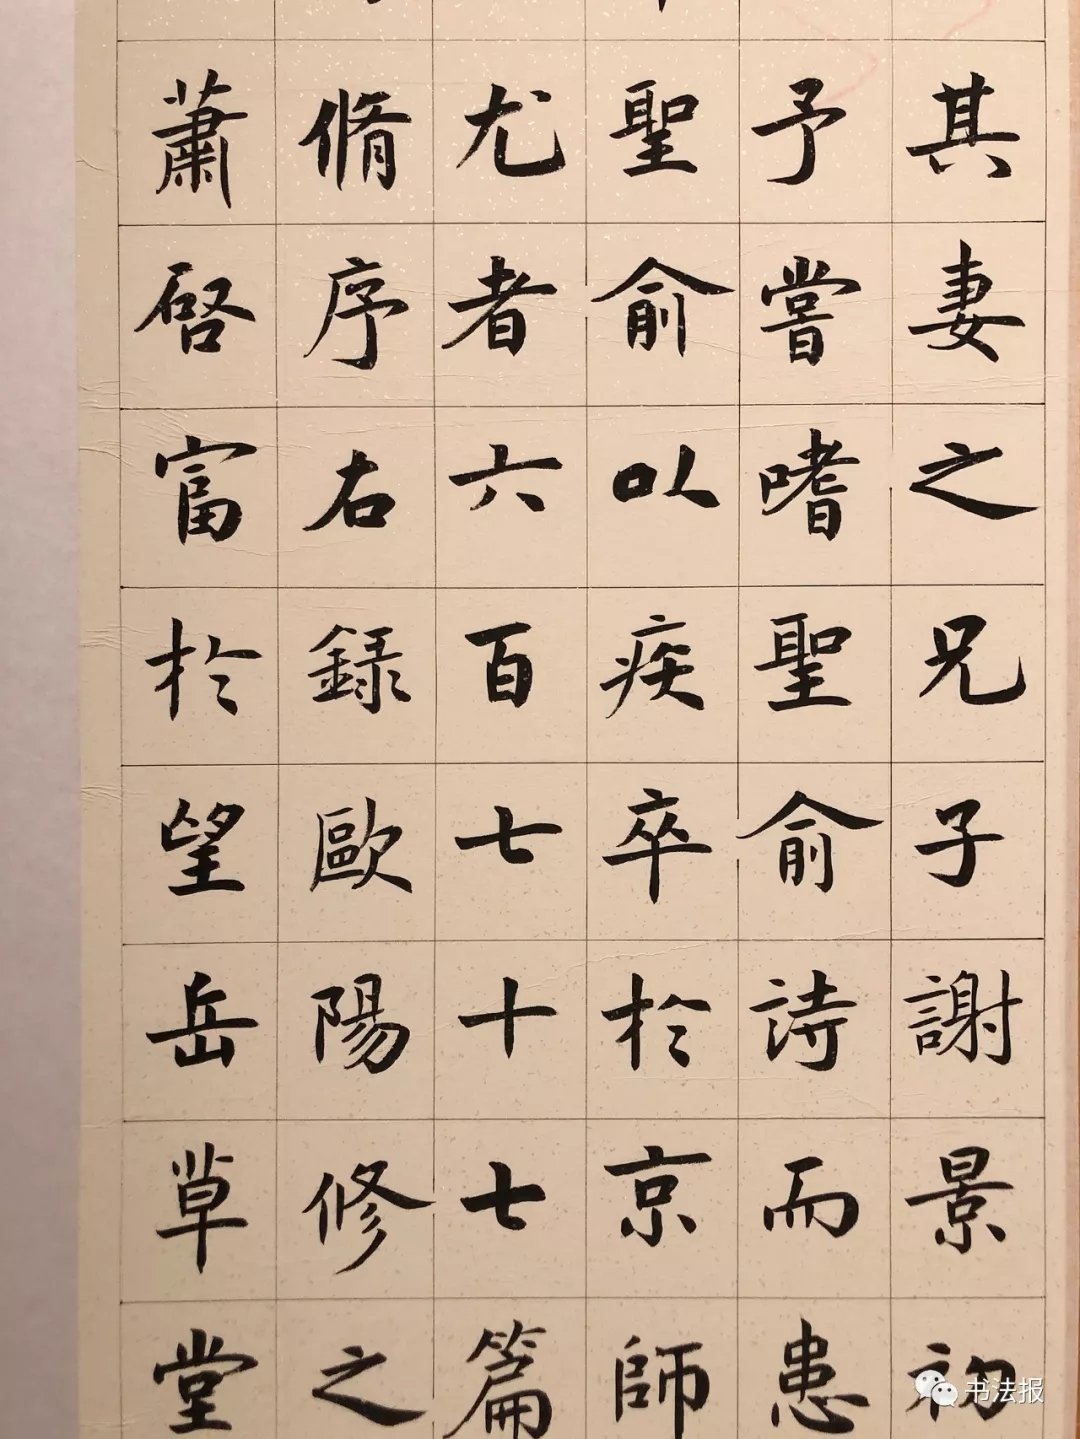 其妻之兄子謝景初
予嘗嗜聖俞詩而患
聖俞以疾卒於京師
尤者六百七十七篇
脩序右錄歐陽修之
蕭啓富於望岳草堂
书法报